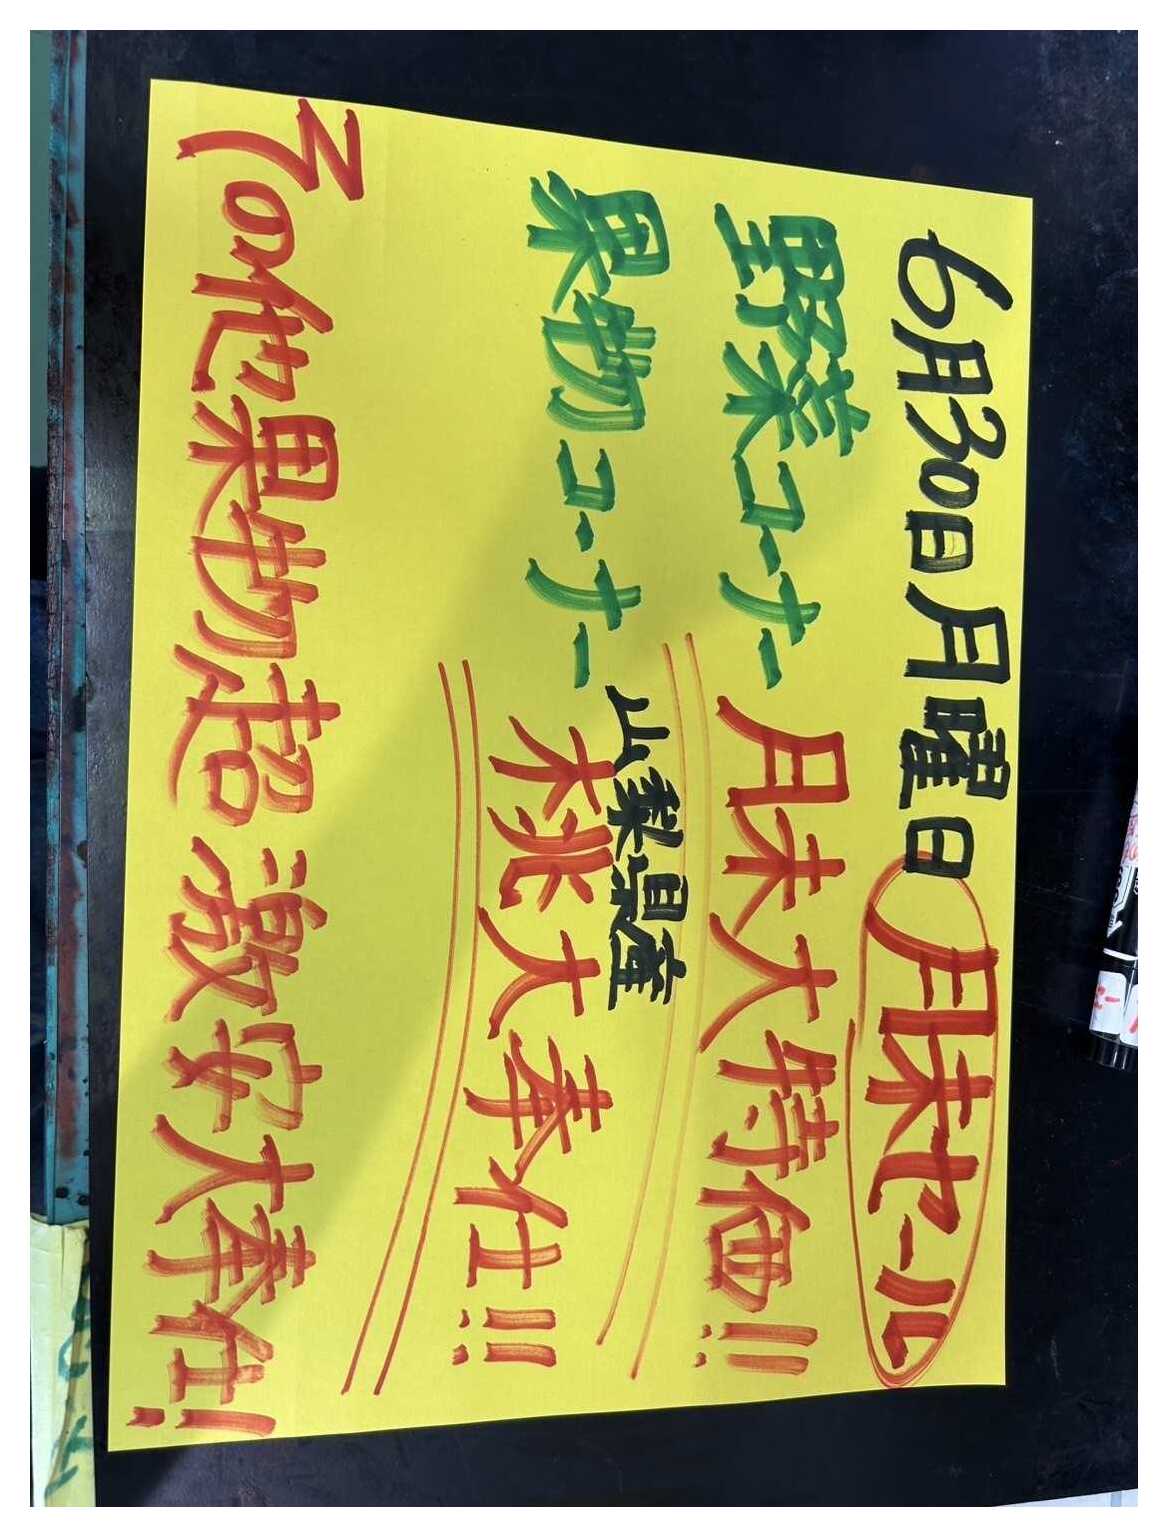 6月30日月曜日 月末セール
野菜コーナー 月末大特価!!
果物コーナー 山梨県産 桃大奉仕!!
その他果物超激安大奉仕!